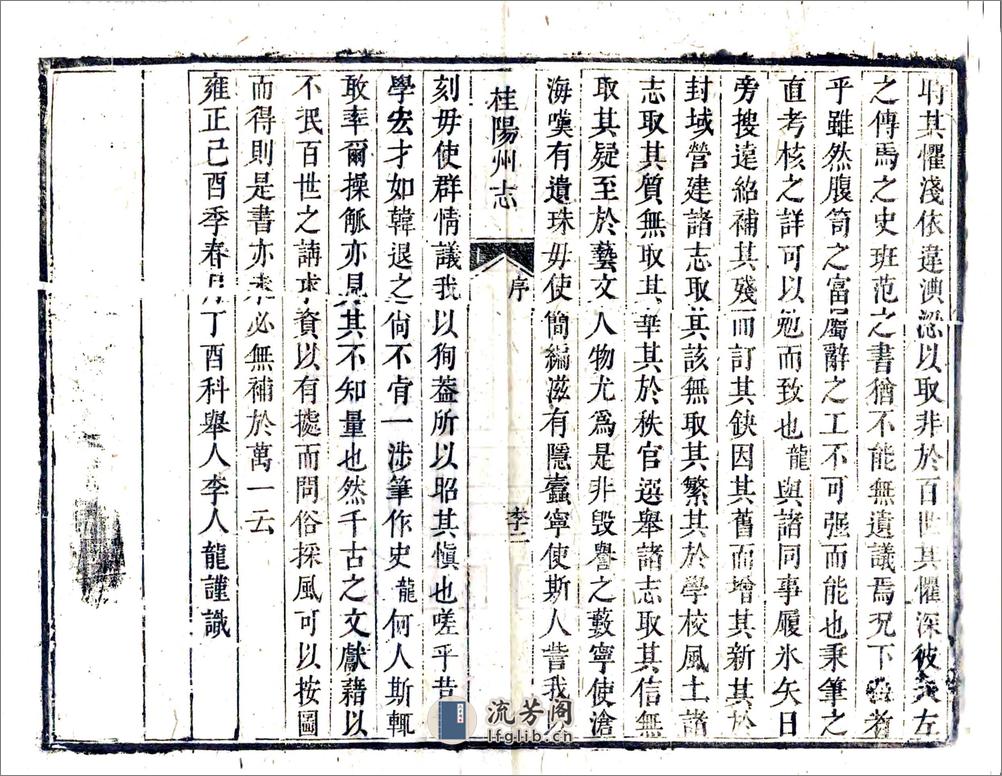 其懼淺依違澳涊以取非於百世其懼深彼夫左
之傳馬之史班范之書猶不能無遺議焉況下者
乎雖然腹笥之富屬辭之工不可强而能也秉筆之
直考核之詳可以勉而致也龍與諸同事履氷矢日
旁搜遠紹補其殘而訂其缺因其舊而增其新其於
封域營建諸志取其該無取其繁其於學校風土諸
志取其質無取其華其於秩官選舉諸志取其信無
取其疑至於藝文人物尤爲是非毀譽之藪寧使滄
海嘆有遺珠毋使簡編滋有隱蠹寧使斯人訾我以
桂陽州志
序
李二
刻毋使群情議我以狥葢所以昭其愼也嗟乎昔
學宏才如韓退之尙不肯一涉筆作史龍何人斯輒
敢率爾操觚亦見其不知量也然千古之文獻藉以
不泯百世之講求資以有據而問俗採風可以按圖
而得則是書亦未必無補於萬一云
雍正己酉季春月丁酉科舉人李人龍謹識
流芳阁
lfglib.cn